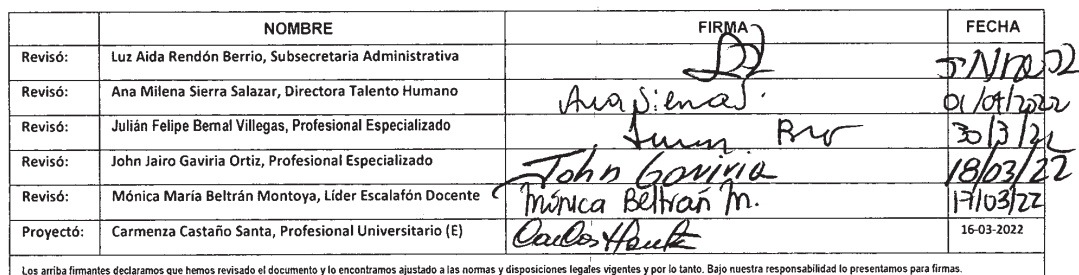 NOMBRE FIRMA FECHA
Revisó: Luz Aida Rendón Berrio, Subsecretaria Administrativa
Revisó: Ana Milena Sierra Salazar, Directora Talento Humano Ana Sierra S. 01/04/2022
Revisó: Julián Felipe Bernal Villegas, Profesional Especializado 30/3/22
Revisó: John Jairo Gaviria Ortiz, Profesional Especializado John Gaviria 18/03/22
Revisó: Mónica María Beltrán Montoya, Líder Escalafón Docente Mónica Beltrán M. 17/03/22
Proyectó: Carmenza Castaño Santa, Profesional Universitario (E) 16-03-2022
Los arriba firmantes declaramos que hemos revisado el documento y lo encontramos ajustado a las normas y disposiciones legales vigentes y por lo tanto. Bajo nuestra responsabilidad lo presentamos para firmas.